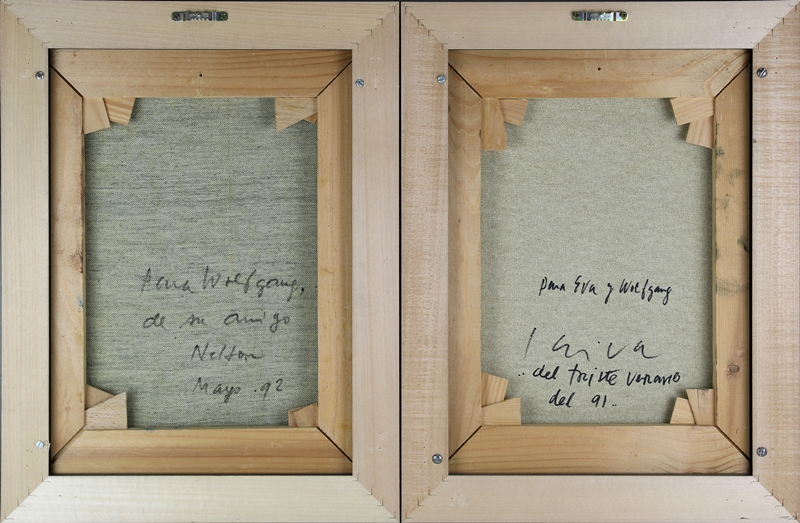 Para Wolfgang,
de su amigo
Nelson
Mayo .92
para Eva y Wolfgang
.. del triste verano
del 91..